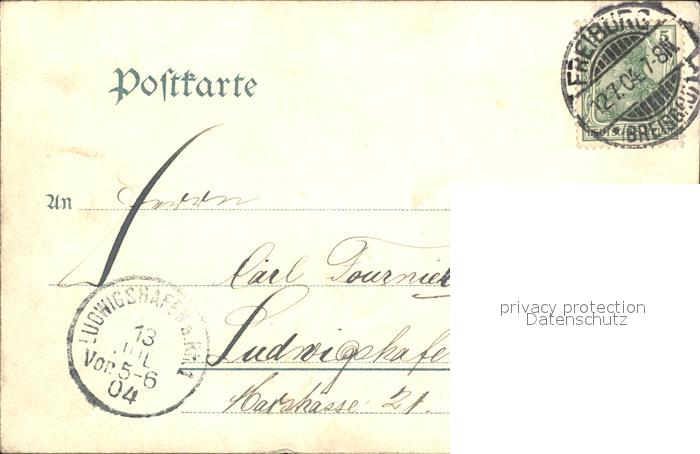 Postkarte
FREIBURG
12.7.04.7-8N.
BREISGAU
5
An Herrn
Carl Fournier
Ludwigshafe
Marstrasse 21.
LUDWIGSHAFEN a. RH. 1
13
JUL
Vor. 5-6
04
privacy protection
Datenschutz